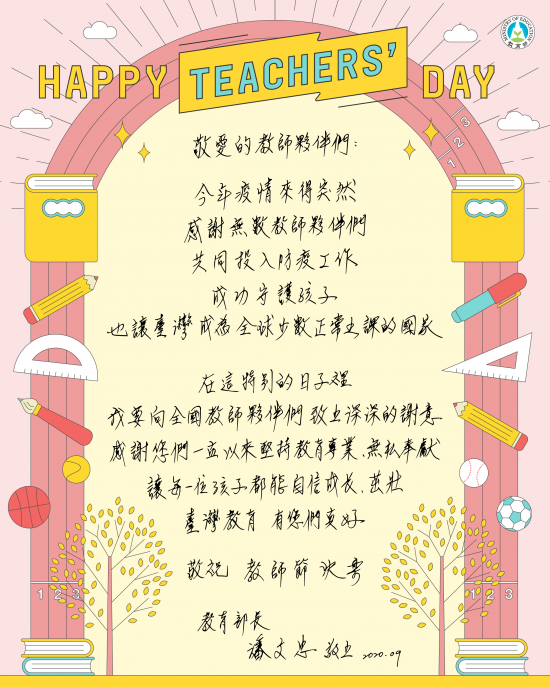 MINISTRY OF EDUCATION
教育部
HAPPY TEACHERS' DAY
3
2
1
敬愛的教師夥伴們：
今年疫情來得突然
感謝無數教師夥伴們
共同投入防疫工作
成功守護孩子
也讓臺灣成為全球少數正常上課的國家
在這特別的日子裡
我要向全國教師夥伴們致上深深的謝意
感謝您們一直以來堅持教育專業、無私奉獻
讓每一位孩子都能自信成長、茁壯
臺灣教育 有您們真好
敬祝 教師節快樂
教育部長
潘文忠 敬上 2020.09
1 2 3
1 2 3